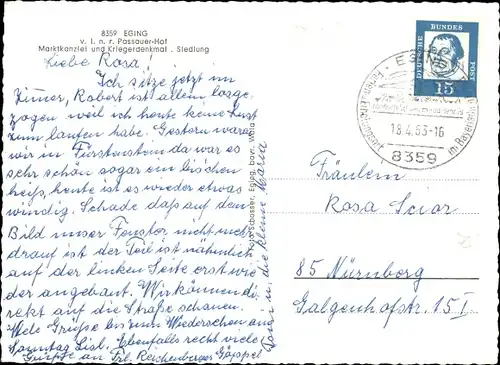 8359 EGING
v. l. n. r. Passauer-Hof
Marktkanzlei und Kriegerdenkmal . Siedlung
Liebe Rosa!
Ich sitze jetzt im
Zimer, Robert ist allein losge-
zogen weil ich heute keine Lust
zum laufen habe. Gestern waren
wir in Fürstenstein da war es
sehr schön sogar ein bischen
heiß, heute ist es wieder etwas
windig. Schade daß auf dem
Bild unser Fenster nicht mehr
drauf ist der Teil ist nähmlich
auf der linken Seite erst wie-
der angebaut. Wir können di-
rekt auf die Straße schauen.
Viele Grüße bis zum Wiedersehen am
Sonntag Lisl. Ebenfalls recht viele
Grüsse an Frl. Reichenberger
und die kleine Maria
Foto Schosser, Eging, bayr. Wald
DEUTSCHE
BUNDES
POST
15
EGING
18.4.63-16
8359
im Bayerischen
Fräulein
Rosa Scior
85 Nürnberg
Galgenhofstr. 15 I.